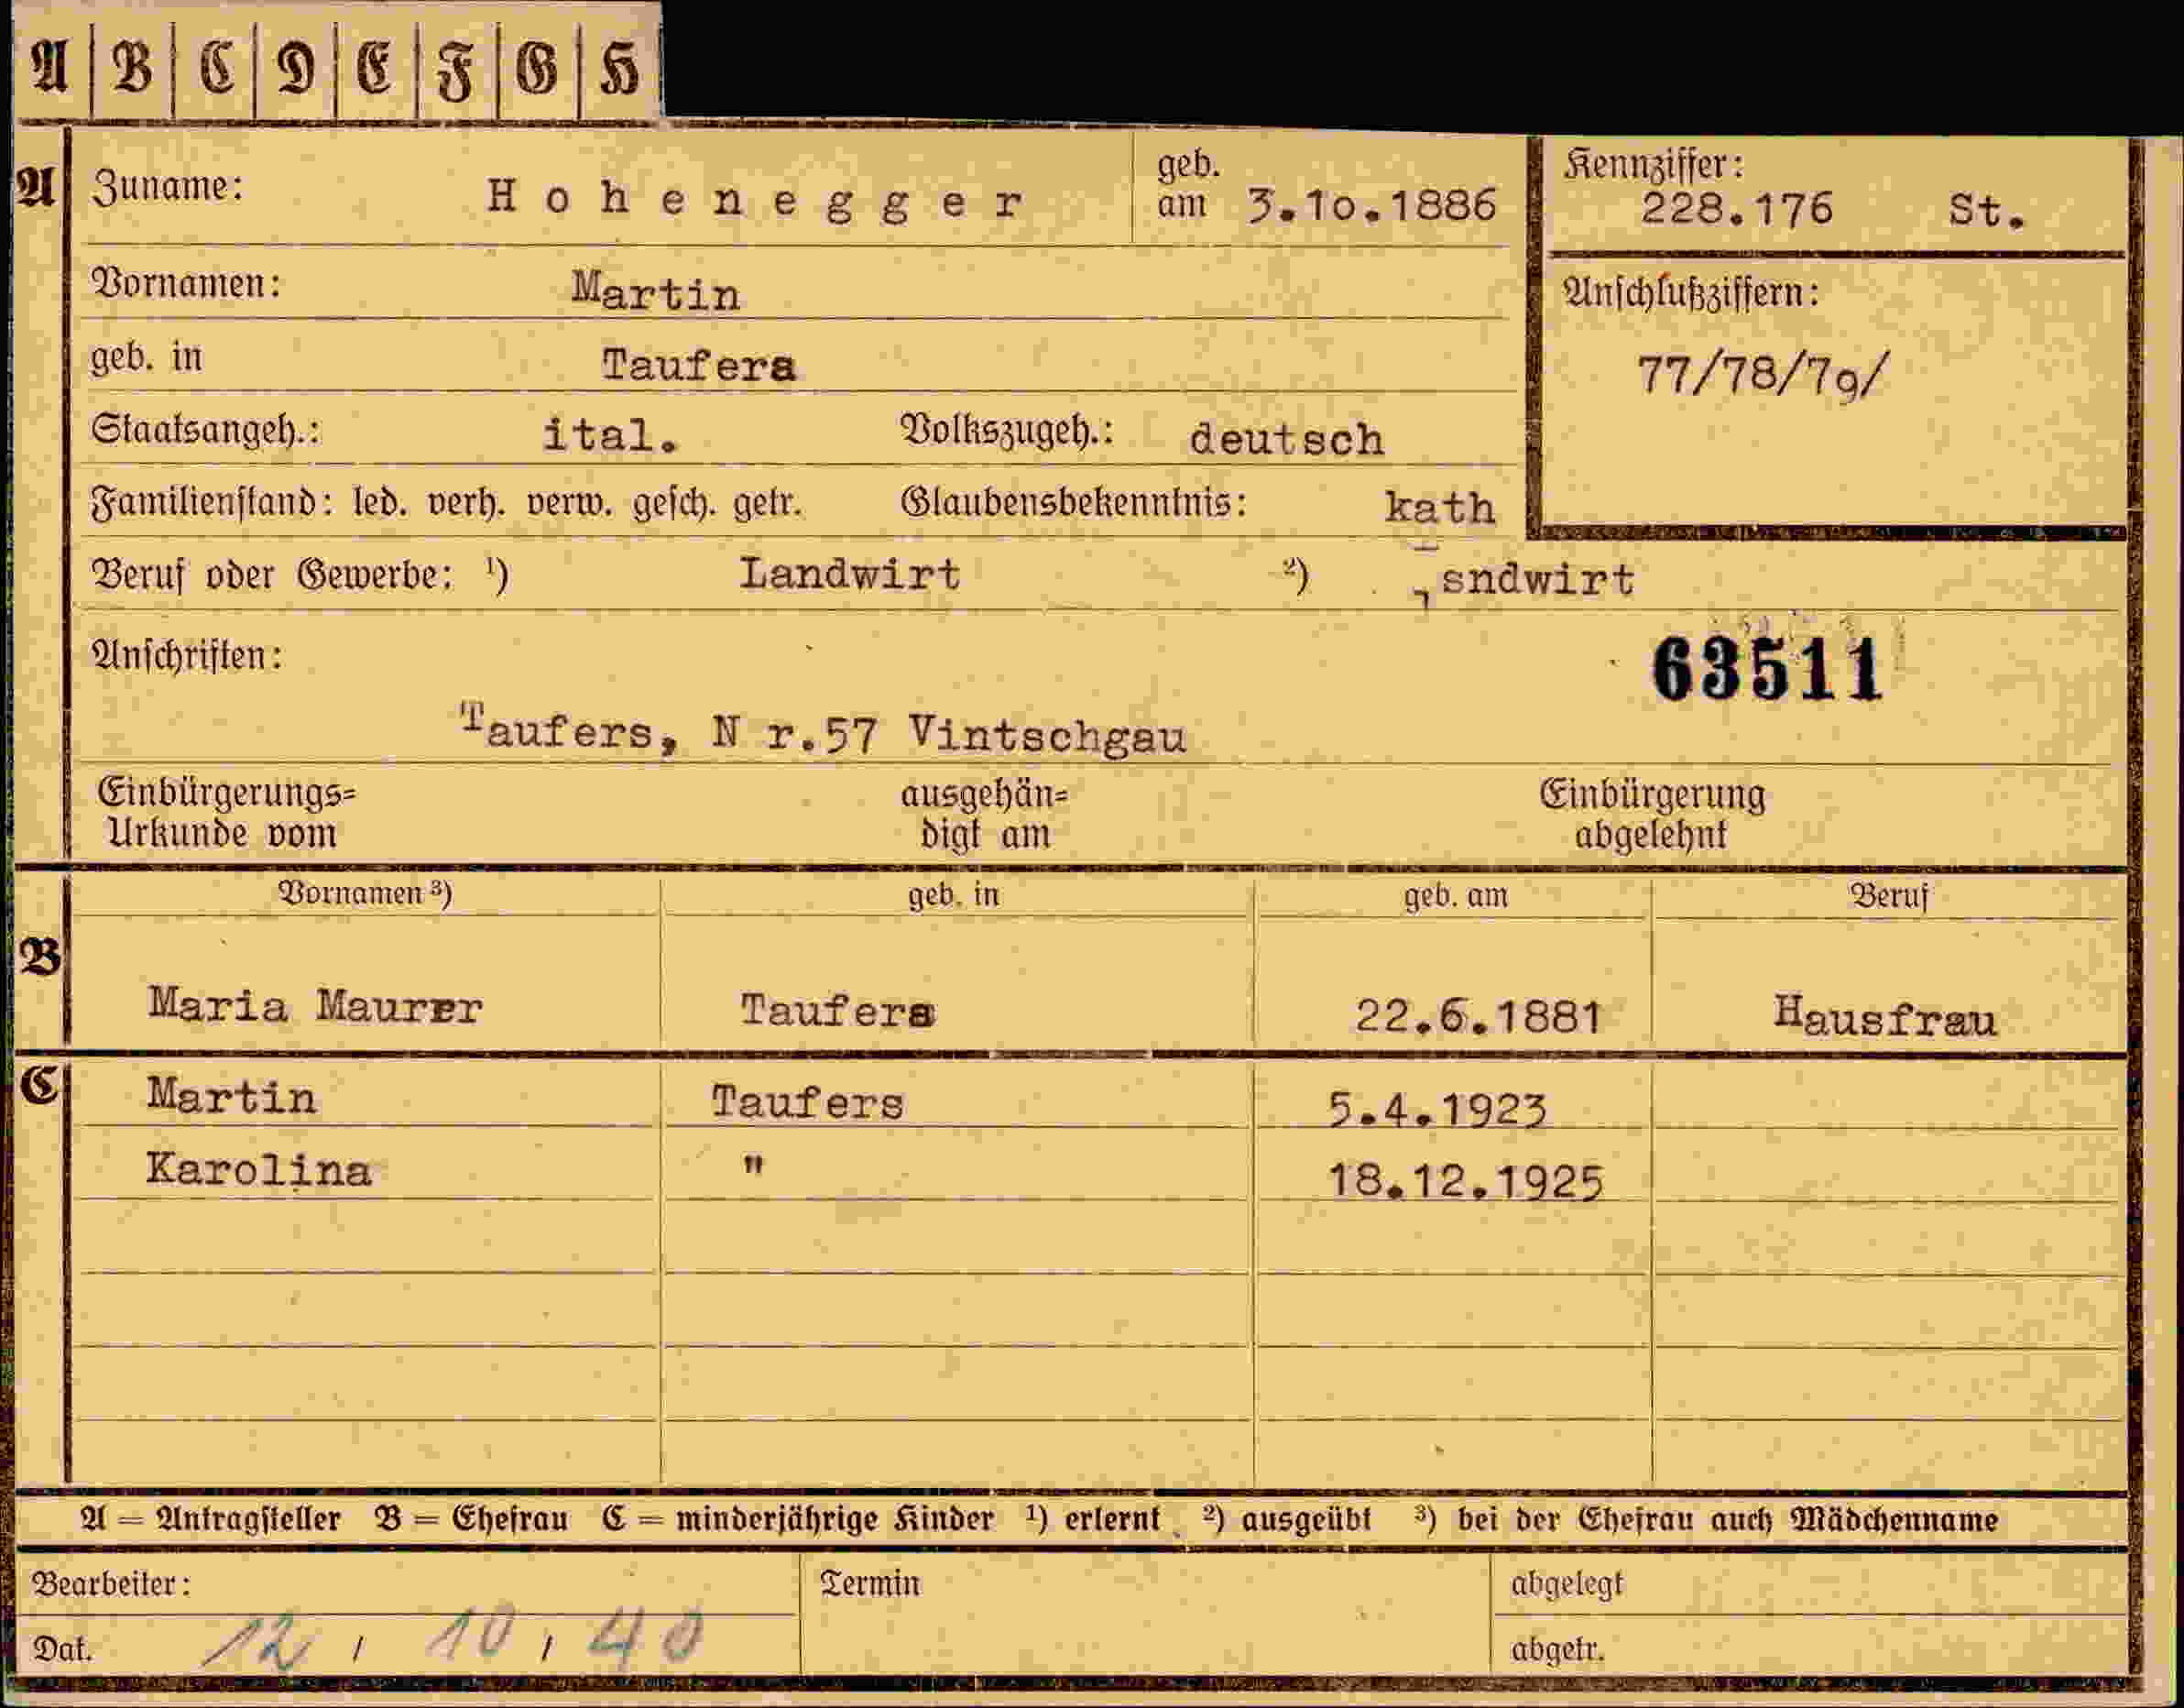 A B C D E F G H
A Zuname: Hohenegger geb. am 3.10.1886 Kennziffer: 228.176 St.
Vornamen: Martin Anschlußziffern:
geb. in Taufers 77/78/79/
Staatsangeh.: ital. Volkszugeh.: deutsch
Familienstand: led. verh. verw. gesch. getr. Glaubensbekenntnis: kath
Beruf oder Gewerbe: ¹) Landwirt ²) sndwirt
Anschriften: 63511
Taufers, N r.57 Vintschgau
Einbürgerungs= ausgehän= Einbürgerung
Urkunde vom digt am abgelehnt
Vornamen ³) geb. in geb. am Beruf
B
Maria Maurer Taufers 22.6.1881 Hausfrau
C Martin Taufers 5.4.1923
Karolina " 18.12.1925
A = Antragsteller B = Ehefrau C = minderjährige Kinder ¹) erlernt ²) ausgeübt ³) bei der Ehefrau auch Mädchenname
Bearbeiter: Termin abgelegt
Dat. 12 / 10 / 40 abgetr.